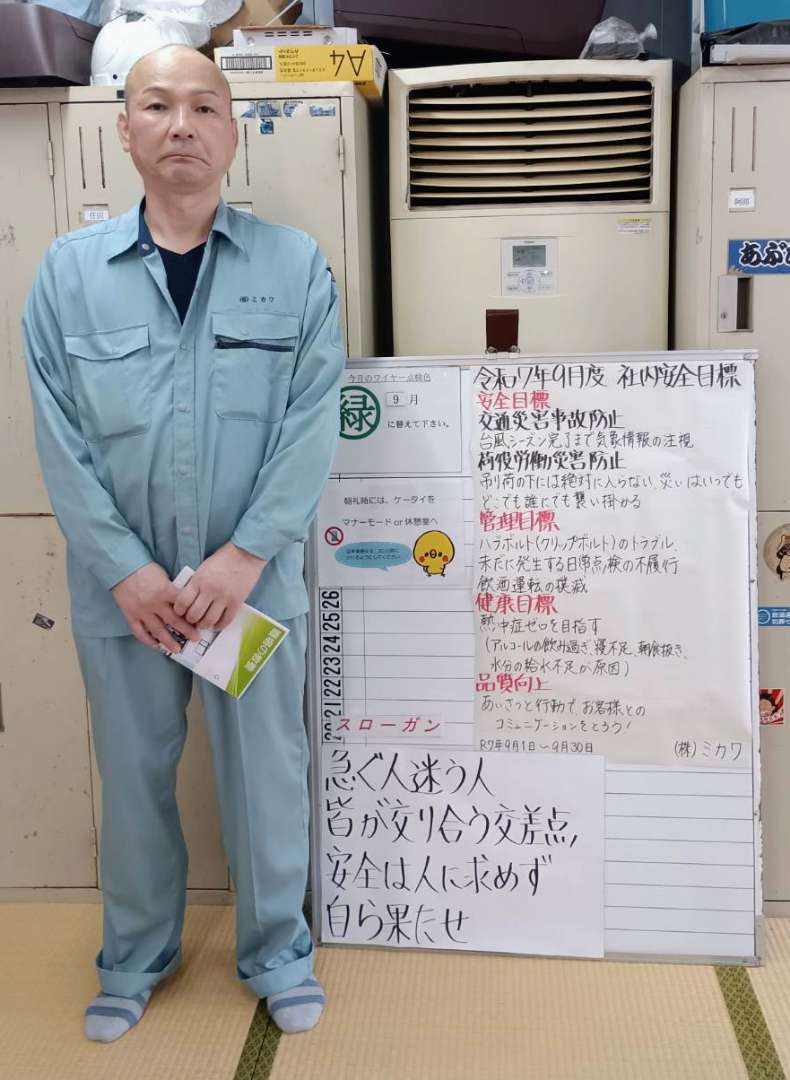 A4
住田
阿部
あぶ
(株)ミカワ
今月のワイヤー点検色
緑
9 月
に替えて下さい。
朝礼時には、ケータイを
マナーモード or 休憩室へ
26
25
24
23
22
21
20
スローガン
急ぐ人迷う人
皆が交り合う交差点、
安全は人に求めず
自ら果たせ
令和7年9月度 社内安全目標
安全目標
交通災害事故防止
台風シーズン完了まで気象情報の注視
荷役労働災害防止
吊り荷の下には絶対に入らない、災いはいつでも
どこでも誰にでも襲い掛かる
管理目標
ハラボルト(クリップボルト)のトラブル、
未だに発生する日常点検の不履行
飲酒運転の撲滅
健康目標
熱中症ゼロを目指す
(アルコールの飲み過ぎ、寝不足、朝食抜き、
水分の給水不足が原因)
品質向上
あいさつと行動で、お客様との
コミュニケーションをとろう!
R7年9月1日~9月30日
(株)ミカワ
職場の教養